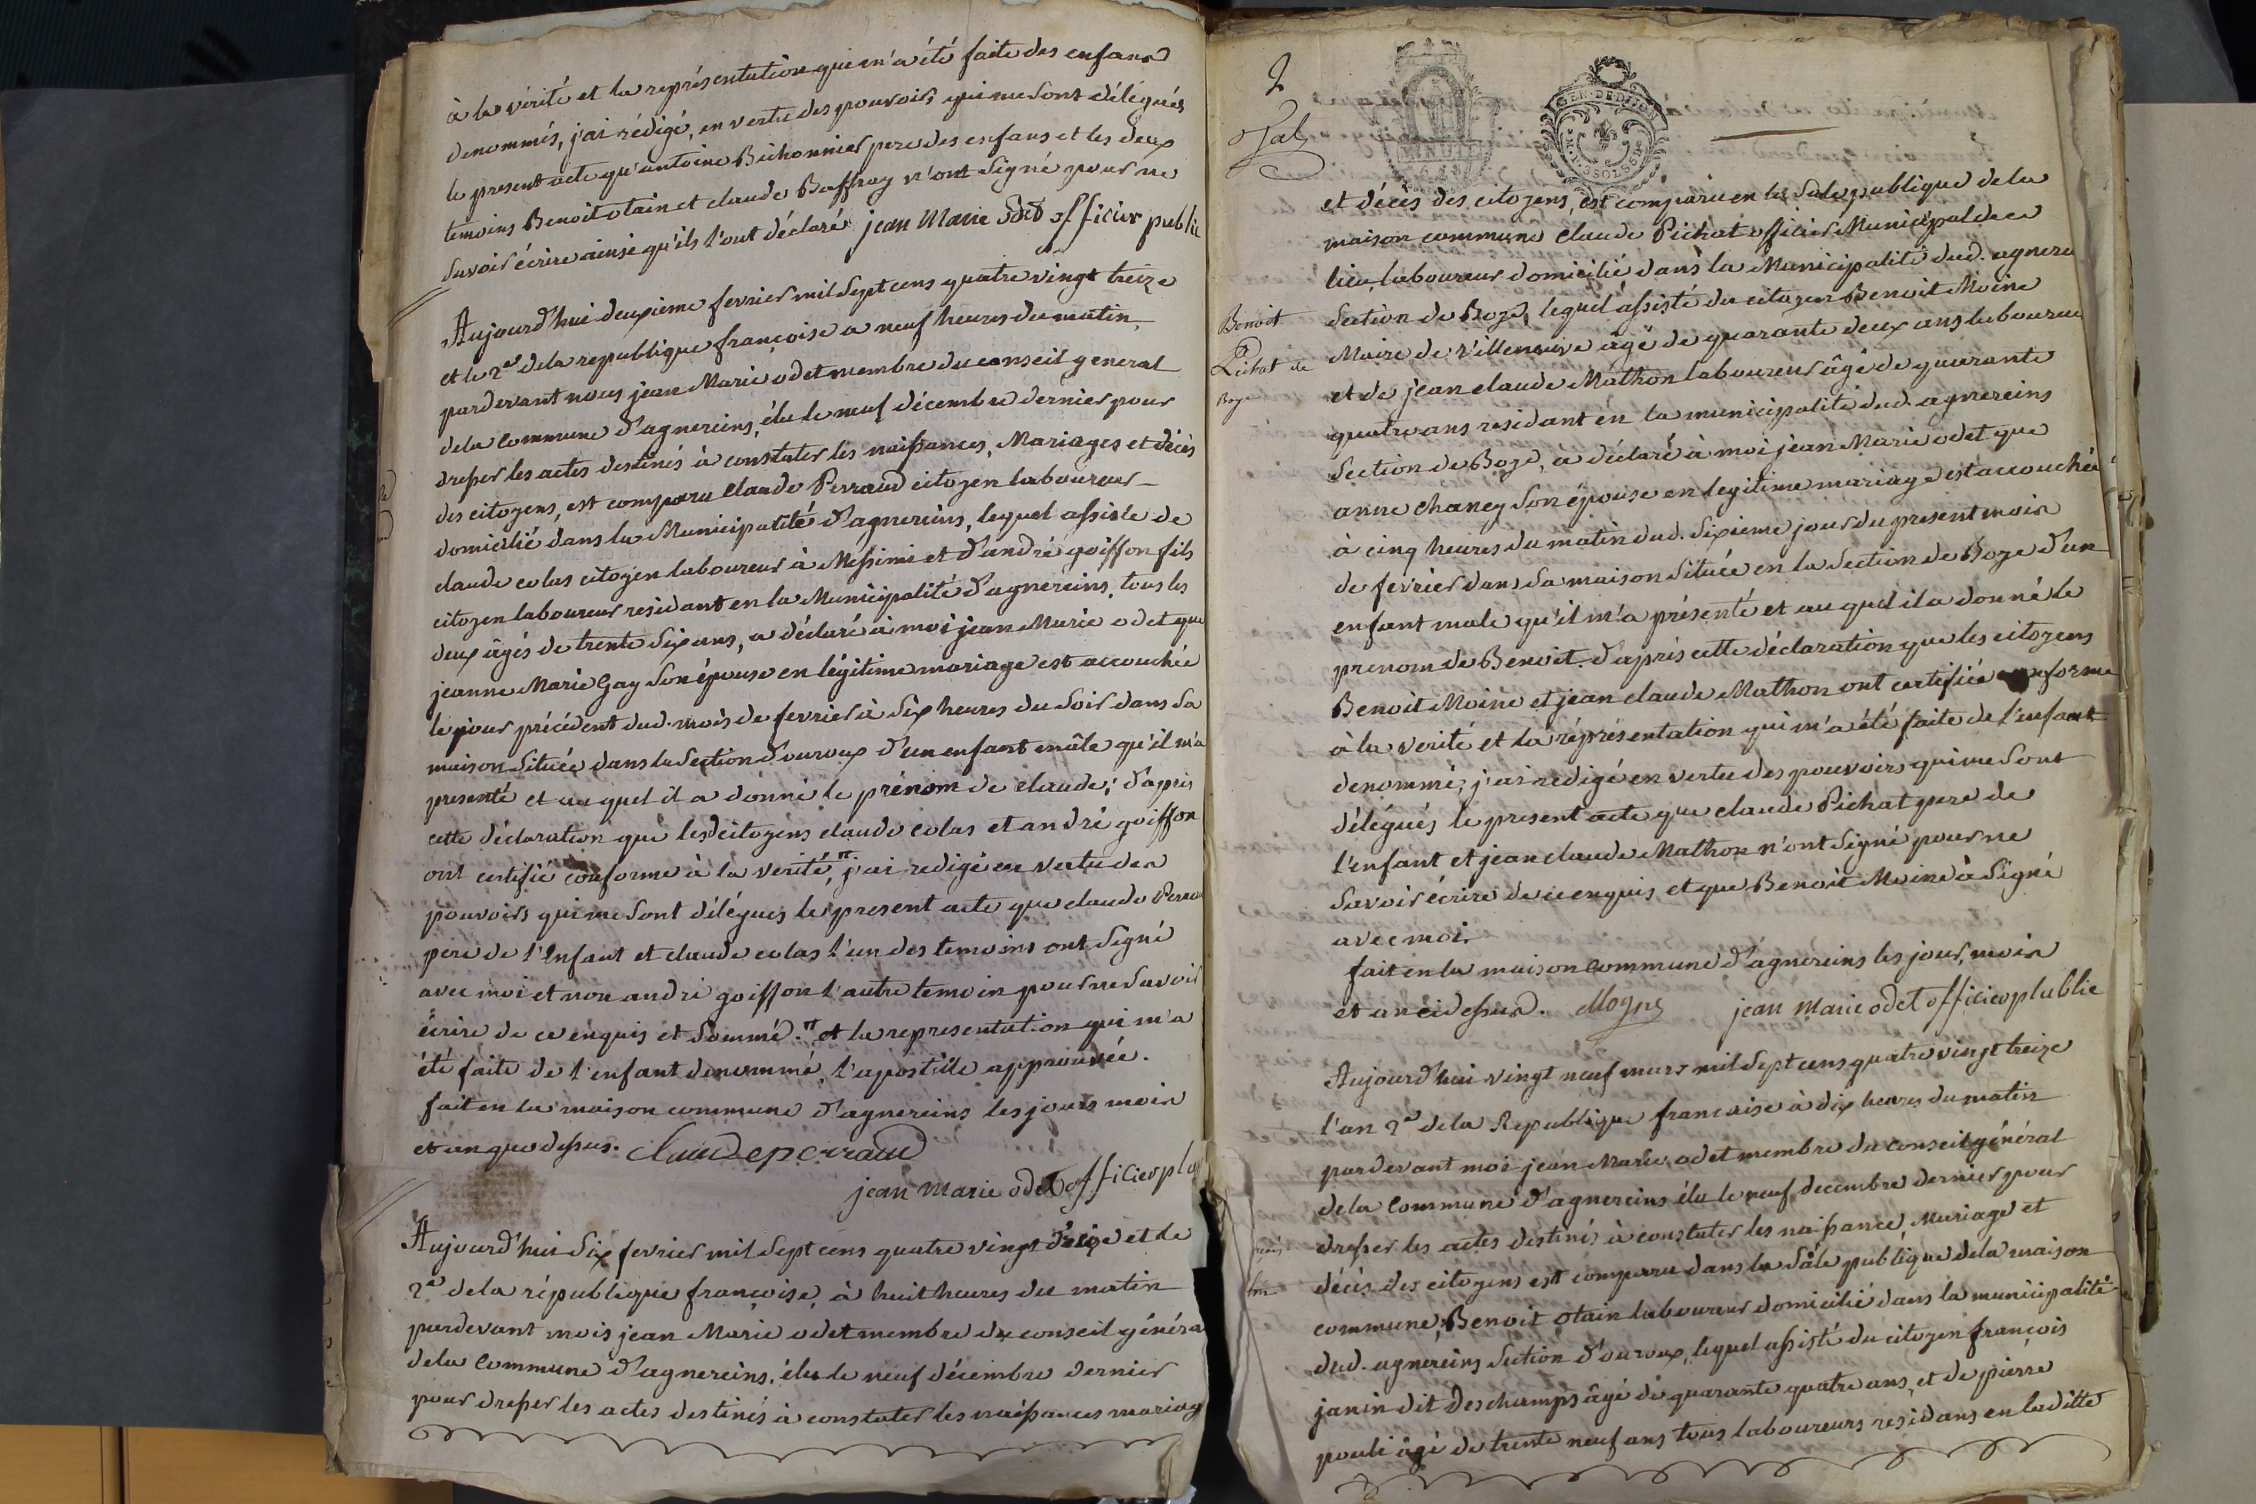 à la vérité et la représentation qui m'a été faite des enfans
denommés, j'ai rédigé, en vertu des pouvoirs qui me sont délégués
le present acte qu'antoine Bichonnier pere des enfans et les deux
temoins Benoit otain et claude Baffray n'ont signé pour ne
savoir écrire ainsi qu'ils l'ont déclaré jean Marie odet officier public
Aujourd'hui deuxieme fevrier mil sept cens quatre vingt treize
et le 2d de la république françoise a neuf heures du matin,
pardevant nous jean Marie odet membre du conseil general
de la commune d'agnereins, élu le neuf décembre dernier pour
dresser les actes destinés à constater les naissances, Mariages et décès
des citoyens, est comparu Claude Perraud citoyen laboureur
domicilié dans la Municipalité d'agnereins, lequel assisté de
claude colas citoyen laboureur à Messimi et d'andré goiffon fils
citoyen laboureur residant en la Municipalité d'agnereins, tous les
deux âgés de trente six ans, a déclaré à moi jean Marie odet que
jeanne Marie Gay son épouse en légitime mariage est accouchée
le jour précédent dud. mois de fevrier à six heures du soir dans sa
maison située dans la Section d'ouroux d'un enfant mâle qu'il m'a
presenté et au quel il a donné le prénom de claude; d'après
cette déclaration que les citoyens claude colas et andré goiffon
ont certifié conforme à la verité, j'ai redigé en vertu des
pouvoirs qui me sont délégués le present acte que claude Perrau
pere de l'Enfant et claude colas l'un des temoins ont signé
avec moi et non andré goiffon l'autre temoin pour ne savoir
écrire de ce enquis et sommé. et la representation qui m'a
été faite de l'enfant denommé, l'apostille approuvée.
fait en la maison commune d'agnereins les jours mois
et an que dessus. Claude perraud
jean marie odet officier pu
Aujourd'hui six fevrier mil sept cens quatre vingt treize et le
2d de la république françoise, à huit heures du matin
pardevant mois jean Marie odet membre du conseil généra
de la Commune d'agnereins, élu le neuf décembre dernier
pour dresser les actes destinés à constater les naissances mariag
2
GEN. DE DIJON
et décès des citoyens, est comparu en la sale publique de la
maison commune Claude Pichat officier Municipal de ce
lieu, laboureur domicilié dans la Municipalité dud. agnere
Section de Boze, lequel assisté du citoyen Benoit Moine
Benoit
Pichat de
Boze
Maire de Villeneuve âgé de quarante deux ans laboureur
et de jean claude Mathon laboureur âgé de quarante
quatre ans residant en la municipalité dud. agnereins
Section de Boze, a déclaré à moi jean Marie odet que
anne chaney son épouse en legitime mariage est accouchée
à cinq heures du matin dud. sixieme jour du present mois
de fevrier dans sa maison située en la Section de Boze d'un
enfant male qu'il m'a présenté et au quel il a donné le
prenom de Benoit. d'après cette déclaration que les citoyens
Benoit Moine et jean claude Mathon ont certifiée conforme
à la verité et la réprésentation qui m'a été faite de l'enfant
denommé; j'ai redigé en vertu des pouvoirs qui me sont
délégués le present acte que claude Pichat pere de
l'enfant et jean claude Mathon n'ont signé pour ne
savoir écrire de ce enquis et que Benoit Moine à signé
avec moi.
fait en la maison commune d'agnereins les jour, mois
et an ci dessus. jean marie odet officier plublic
Aujourd'hui vingt neuf mars mil sept cens quatre vingt treize
l'an 2d de la Republique francaise à dix heures du matin
pardevant moi jean Marie odet membre du conseil général
de la commune d'agnereins élu le neuf decembre dernier pour
dresser les actes destinés à constater les naissance, Mariage et
décès des citoyens est comparu dans la sâle publique de la maison
commune, Benoit otain laboureur domicilié dans la municipalité
dud. agnereins Section d'ouroux, lequel assisté du citoyen françois
janin dit Deschamps âgé de quarante quatre ans, et de pierre
pouli âgé de trente neuf ans tous laboureurs residans en laditte